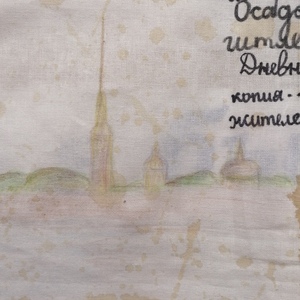 Осадо
гитле
Дневн
копия -
жителе